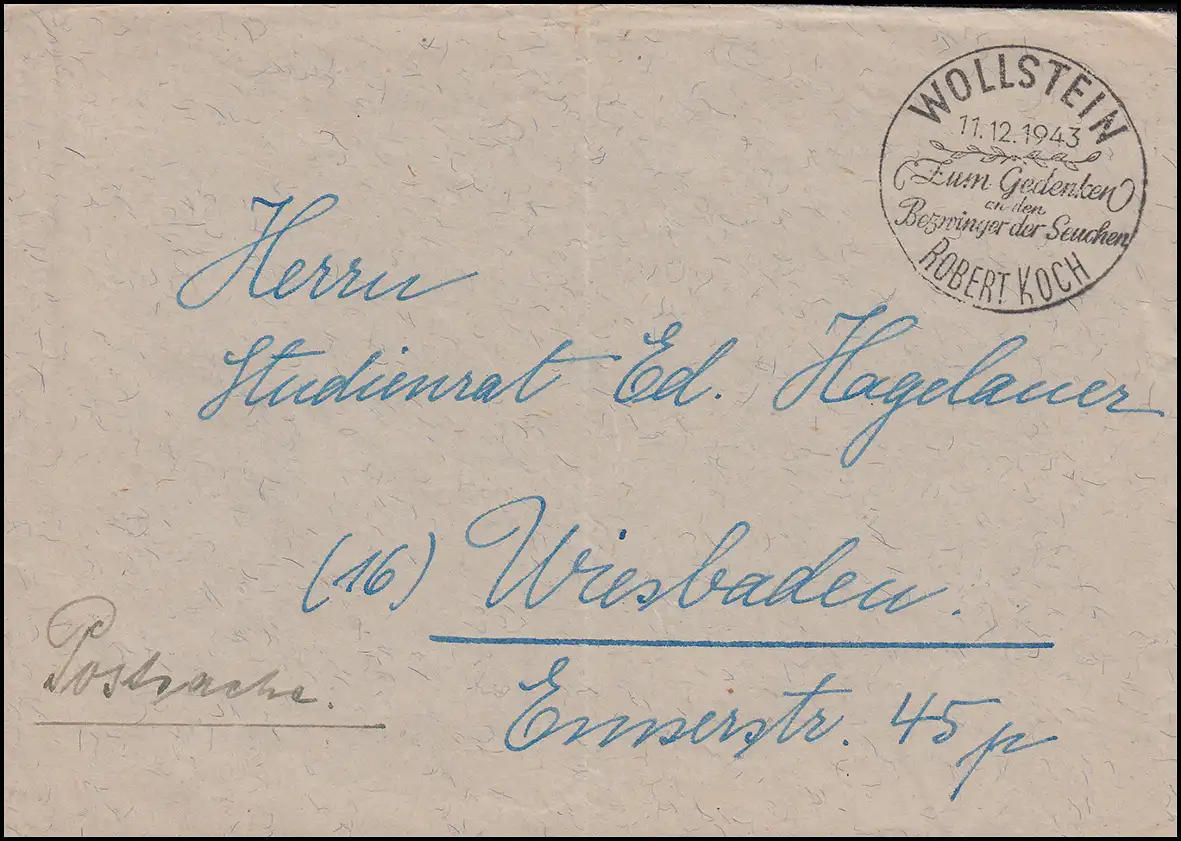 WOLLSTEIN
11.12.1943
Zum Gedenken
an den
Bezwinger der Seuchen
ROBERT KOCH
Herrn
Studienrat Ed. Hagelauer
(16) Wiesbaden.
Postsache.
Emserstr. 45 p